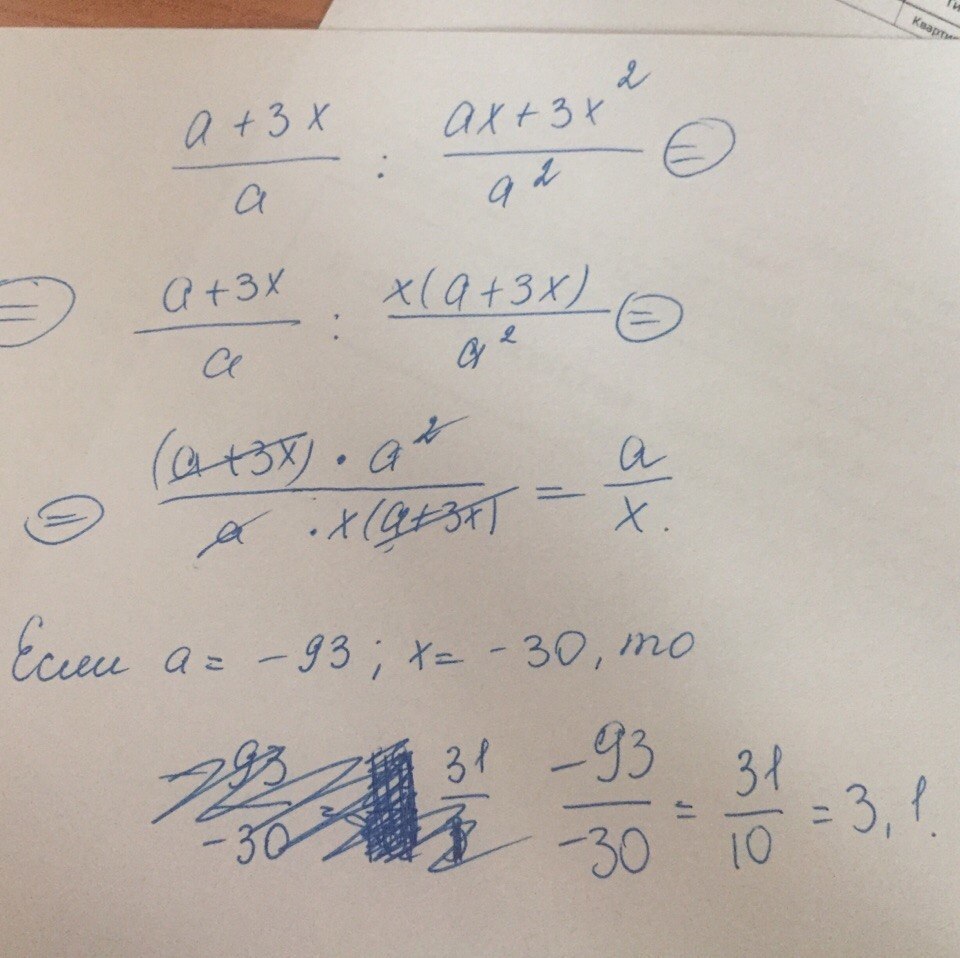 Ти
Кварти
(a + 3x)/a : (ax + 3x²)/a² =
= (a + 3x)/a : x(a + 3x)/a² =
= (a + 3x) · a² / a · x(a + 3x) = a/x.
Если a = -93; x = -30, то
-93/-30 = 31/10 = 3,1.